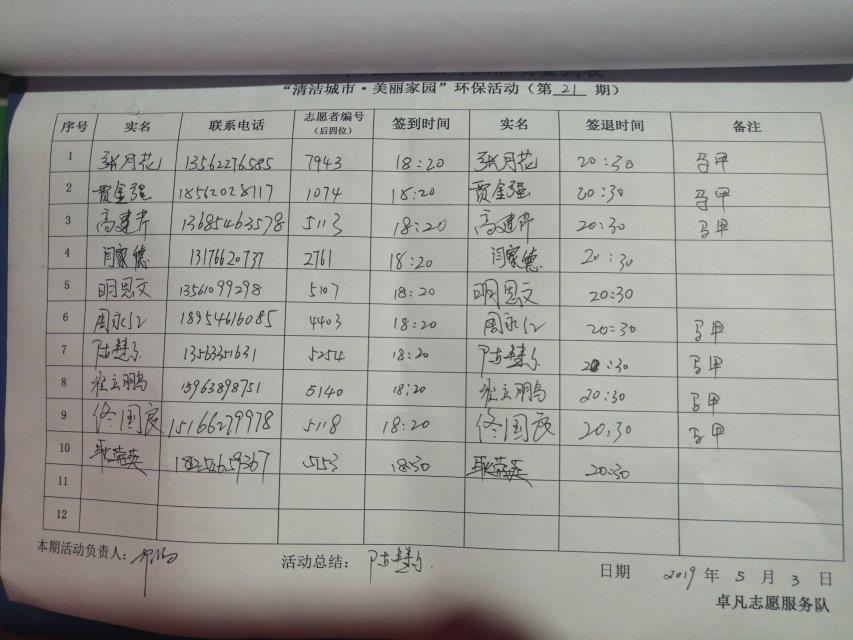 "清洁城市·美丽家园"环保活动（第 21 期）
序号 实名 联系电话 志愿者编号（后四位） 签到时间 实名 签退时间 备注
1 张月花 13562276585 7943 18:20 张月花 20:30 马甲
2 贾金强 18562028117 1074 18:20 贾金强 20:30 马甲
3 高建芹 13685463578 5113 18:20 高建芹 20:30 马甲
4 闫家德 13176620737 2761 18:20 闫家德 20:30
5 明思文 13561099298 5107 18:20 明思文 20:30
6 周永仁 18954616085 4403 18:20 周永仁 20:30 马甲
7 13563351631 5254 18:20 20:30 马甲
8 崔云鹏 15963898751 5140 18:20 崔云鹏 20:30 马甲
9 佟国辰 15166279978 5118 18:20 佟国辰 20:30 马甲
10 耿荣英 18254659367 5153 18:30 耿荣英 20:30
11
12
本期活动负责人： 活动总结：
日期 2019 年 5 月 3 日
卓凡志愿服务队